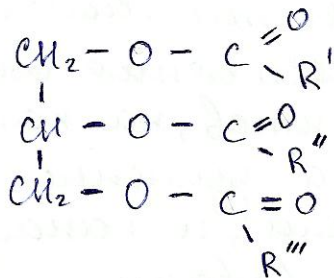 CH₂ – O – C =O
R'
CH – O – C =O
R''
CH₂ – O – C = O
R'''